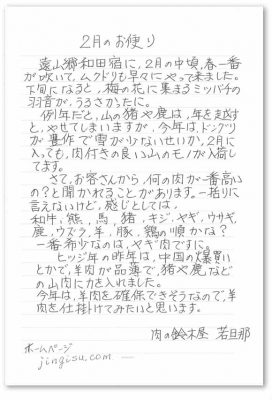 2月のお便り
遠山郷和田宿に、2月の中頃、春一番
が吹いて、ムクドリも早々にやって来ました。
下旬になると、梅の花に集まるミツバチの
羽音が、うるさかたに。
例年だと、山の猪や鹿は、年を越す
と、やせてしまいますが、今年は、ドングリ
が豊作で雪が少ないせいか、2月に
入っても、肉付きの良い山のモノが入荷し
てます。
さて、お客さんから、何の肉が一番高い
の?と聞かれることがあります。一括りに
言えないけど、感じとしては、
和牛、熊、馬、猪、キジ、ヤギ、ウサギ、
鹿、ウズラ、羊、豚、鶏の順かな?
一番希少なのは、ヤギ肉ですに。
ヒツジ年の昨年は、中国の爆買い
とかで、羊肉が品薄で、猪や鹿などと
の山肉に力を入れました。
今年は、羊肉を確保できそうなので、羊
肉を仕掛けてみたいと思います。
肉の鈴木屋 若旦那
ホームページ
jingisu.com